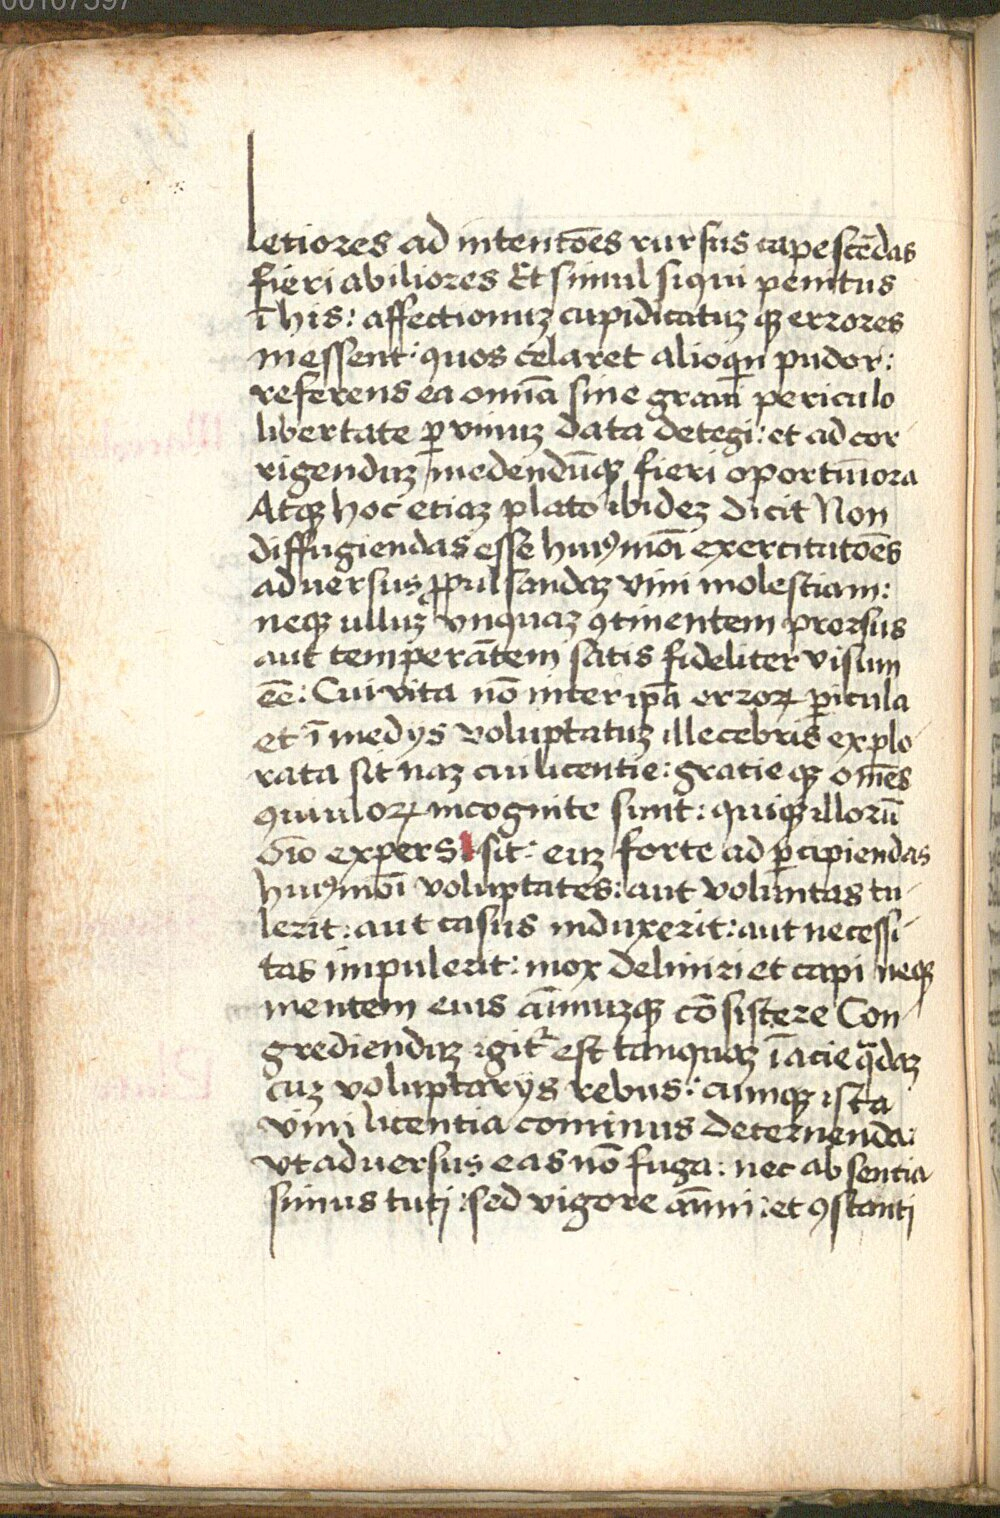 00107597
Letiores ad intentōes rursus capescēdas
fieri abiliores Et simul siqui penitus
ī his: affectionuꝫ cupiditatuꝫ qꝫ errores
inessent: quos celaret alioqͥn pudor:
referens ea omīa sine graui periculo
libertate ꝑ vinuꝫ data detegi: et ad cor-
rigenduꝫ medendūqꝫ fieri oportūiora
Atqꝫ hoc etiaꝫ plato ibideꝫ dicit Non
diffugiendas esse huiꝰmōi exercitatōes
aduersus ꝓpulsandaꝫ vini molestiam:
neqꝫ ulluꝫ vnquaꝫ ꝯtinentem prorsus
aut temperātem satis fideliter visum
eē: Cui vita nō inter ip̄a erroꝝ ꝑicula
et ī medijs voluptatuꝫ illecebris explo-
rata sit naꝫ cui licentie: gratie qꝫ om̄es
ꝯuiuioꝝ incognite sunt: quiqꝫ illorū
oīo expers sit: euꝫ forte ad ꝑcipiendas
huiꝰmōi voluptates: aut voluntas tu-
lerit: aut casus induxerit: aut necessi-
tas impulerit: mox deliniri et capi neqꝫ
mentem eius aīmuꝫqꝫ cōsistere Con-
grediendūꝫ igit᷑ est tanquaꝫ ī acie qͣdaꝫ
cuꝫ voluptarijs rebus: cumqꝫ ista
vini licentia cominus decernenda:
vt aduersus eas nō fuga: nec absentia
simus tuti: sed vigore aīmi: et ꝯstanti